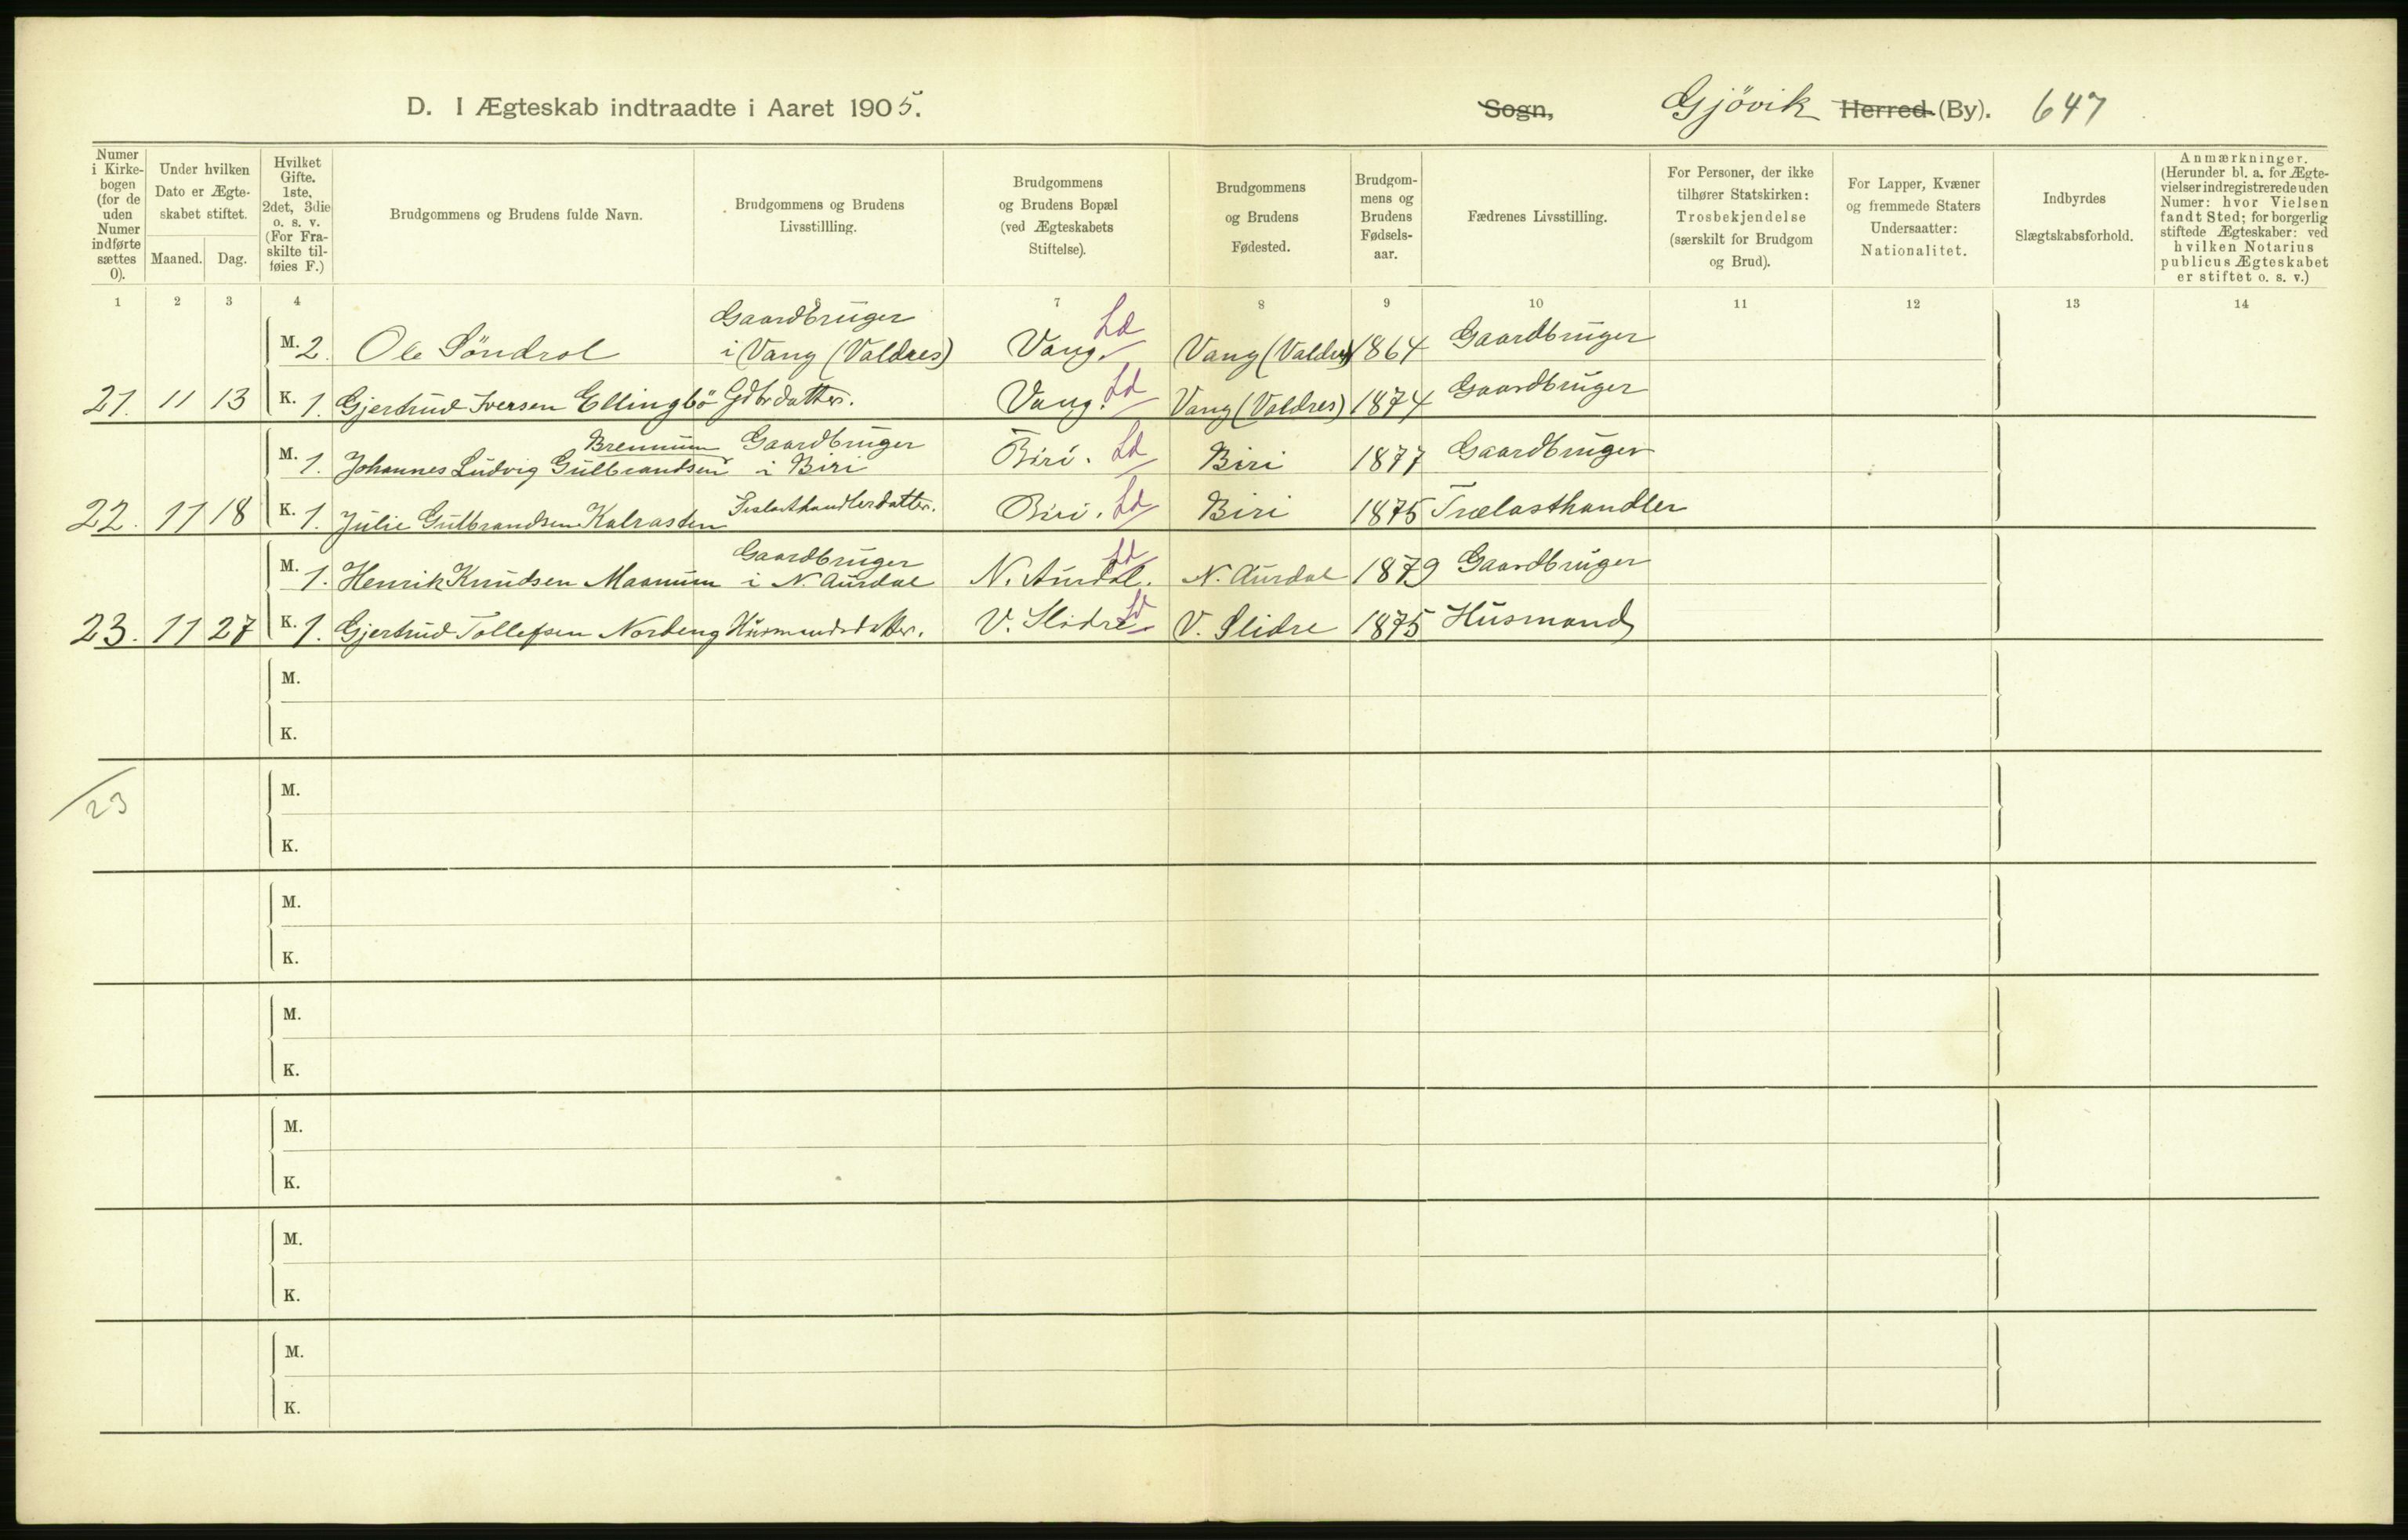 D. I Ægteskab indtraadte i Aaret 1905.
Sogn, Gjövik Herred (By). 647
Numer i Kirkebogen (for de uden Numer indførte sættes 0).
Under hvilken Dato er Ægteskabet stiftet.
Maaned. Dag.
Hvilket Gifte. 1ste, 2det, 3die o. s. v. (For Fraskilte tilføies F.)
Brudgommens og Brudens fulde Navn.
Brudgommens og Brudens Livsstillling.
Brudgommens og Brudens Bopæl (ved Ægteskabets Stiftelse).
Brudgommens og Brudens Fødested.
Brudgommens og Brudens Fødselsaar.
Fædrenes Livsstilling.
For Personer, der ikke tilhører Statskirken: Trosbekjendelse (særskilt for Brudgom og Brud).
For Lapper, Kvæner og fremmede Staters Undersaatter: Nationalitet.
Indbyrdes Slægtskabsforhold.
Anmærkninger. (Herunder bl. a. for Ægtevielser indregistrerede uden Numer: hvor Vielsen fandt Sted; for borgerlig stiftede Ægteskaber: ved hvilken Notarius publicus Ægteskabet er stiftet o. s. v.)
1 2 3 4 7 8 9 10 11 12 13 14
M. 2. Ole Söndrol Gaardbruger i Vang (Valdres) Vang. Ld Vang (Valdres) 1864 Gaardbruger
21. 11 13 K. 1. Gjertrud Iversen Ellingbö Gdbrdatter. Vang. Ld Vang (Valdres) 1874 Gaardbruger
M. 1. Johannes Ludvig Gulbrandsen Brennum Gaardbruger i Biri Biri. Ld Biri 1877 Gaardbruger
22. 11 18 K. 1. Julie Gulbrandsen Kalrasten Trelasthandlerdatter. Biri. Ld Biri 1875 Trælasthandler
M. 1. Henrik Knudsen Maanum Gaardbruger i N. Aurdal N. Aurdal. Ld N. Aurdal 1879 Gaardbruger
23. 11 27 K. 1. Gjertrud Tollefsen Nordeng Husmandsdatter. V. Slidre Ld V. Slidre 1875 Husmand
M.
K.
23
M.
K.
M.
K.
M.
K.
M.
K.
M.
K.
M.
K.